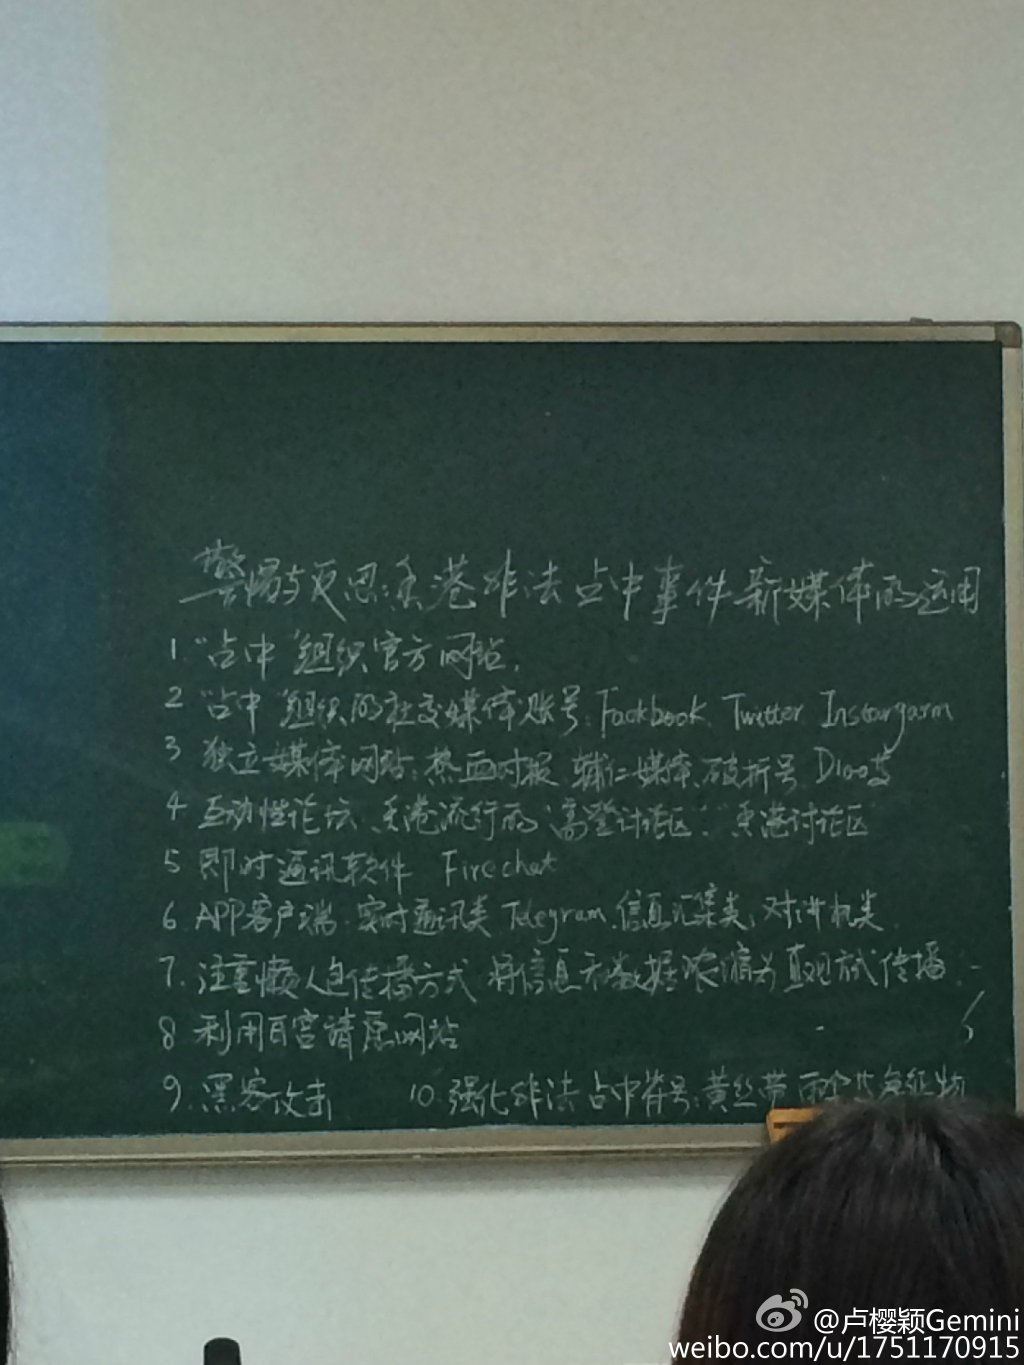 警惕与反思:香港非法占中事件新媒体的运用
1."占中"组织官方网站.
2 "占中"组织的社交媒体账号:Fackbook Twitter Instargarm
3 独立媒体网站:热血时报 辅仁媒体 破折号 D100等
4 互动性论坛 香港流行的"高登讨论区""香港讨论区
5 即时通讯软件 Firechat
6. APP客户端.实时通讯类 Telegram.信息汇集类,对讲机类.
7. 注重懒人包传播方式 将信息和数据浓缩为直观方式传播.
8 利用白宫请愿网站
9. 黑客攻击 10.强化非法占中符号:黄丝带 雨伞
@卢樱颖Gemini
weibo.com/u/1751170915